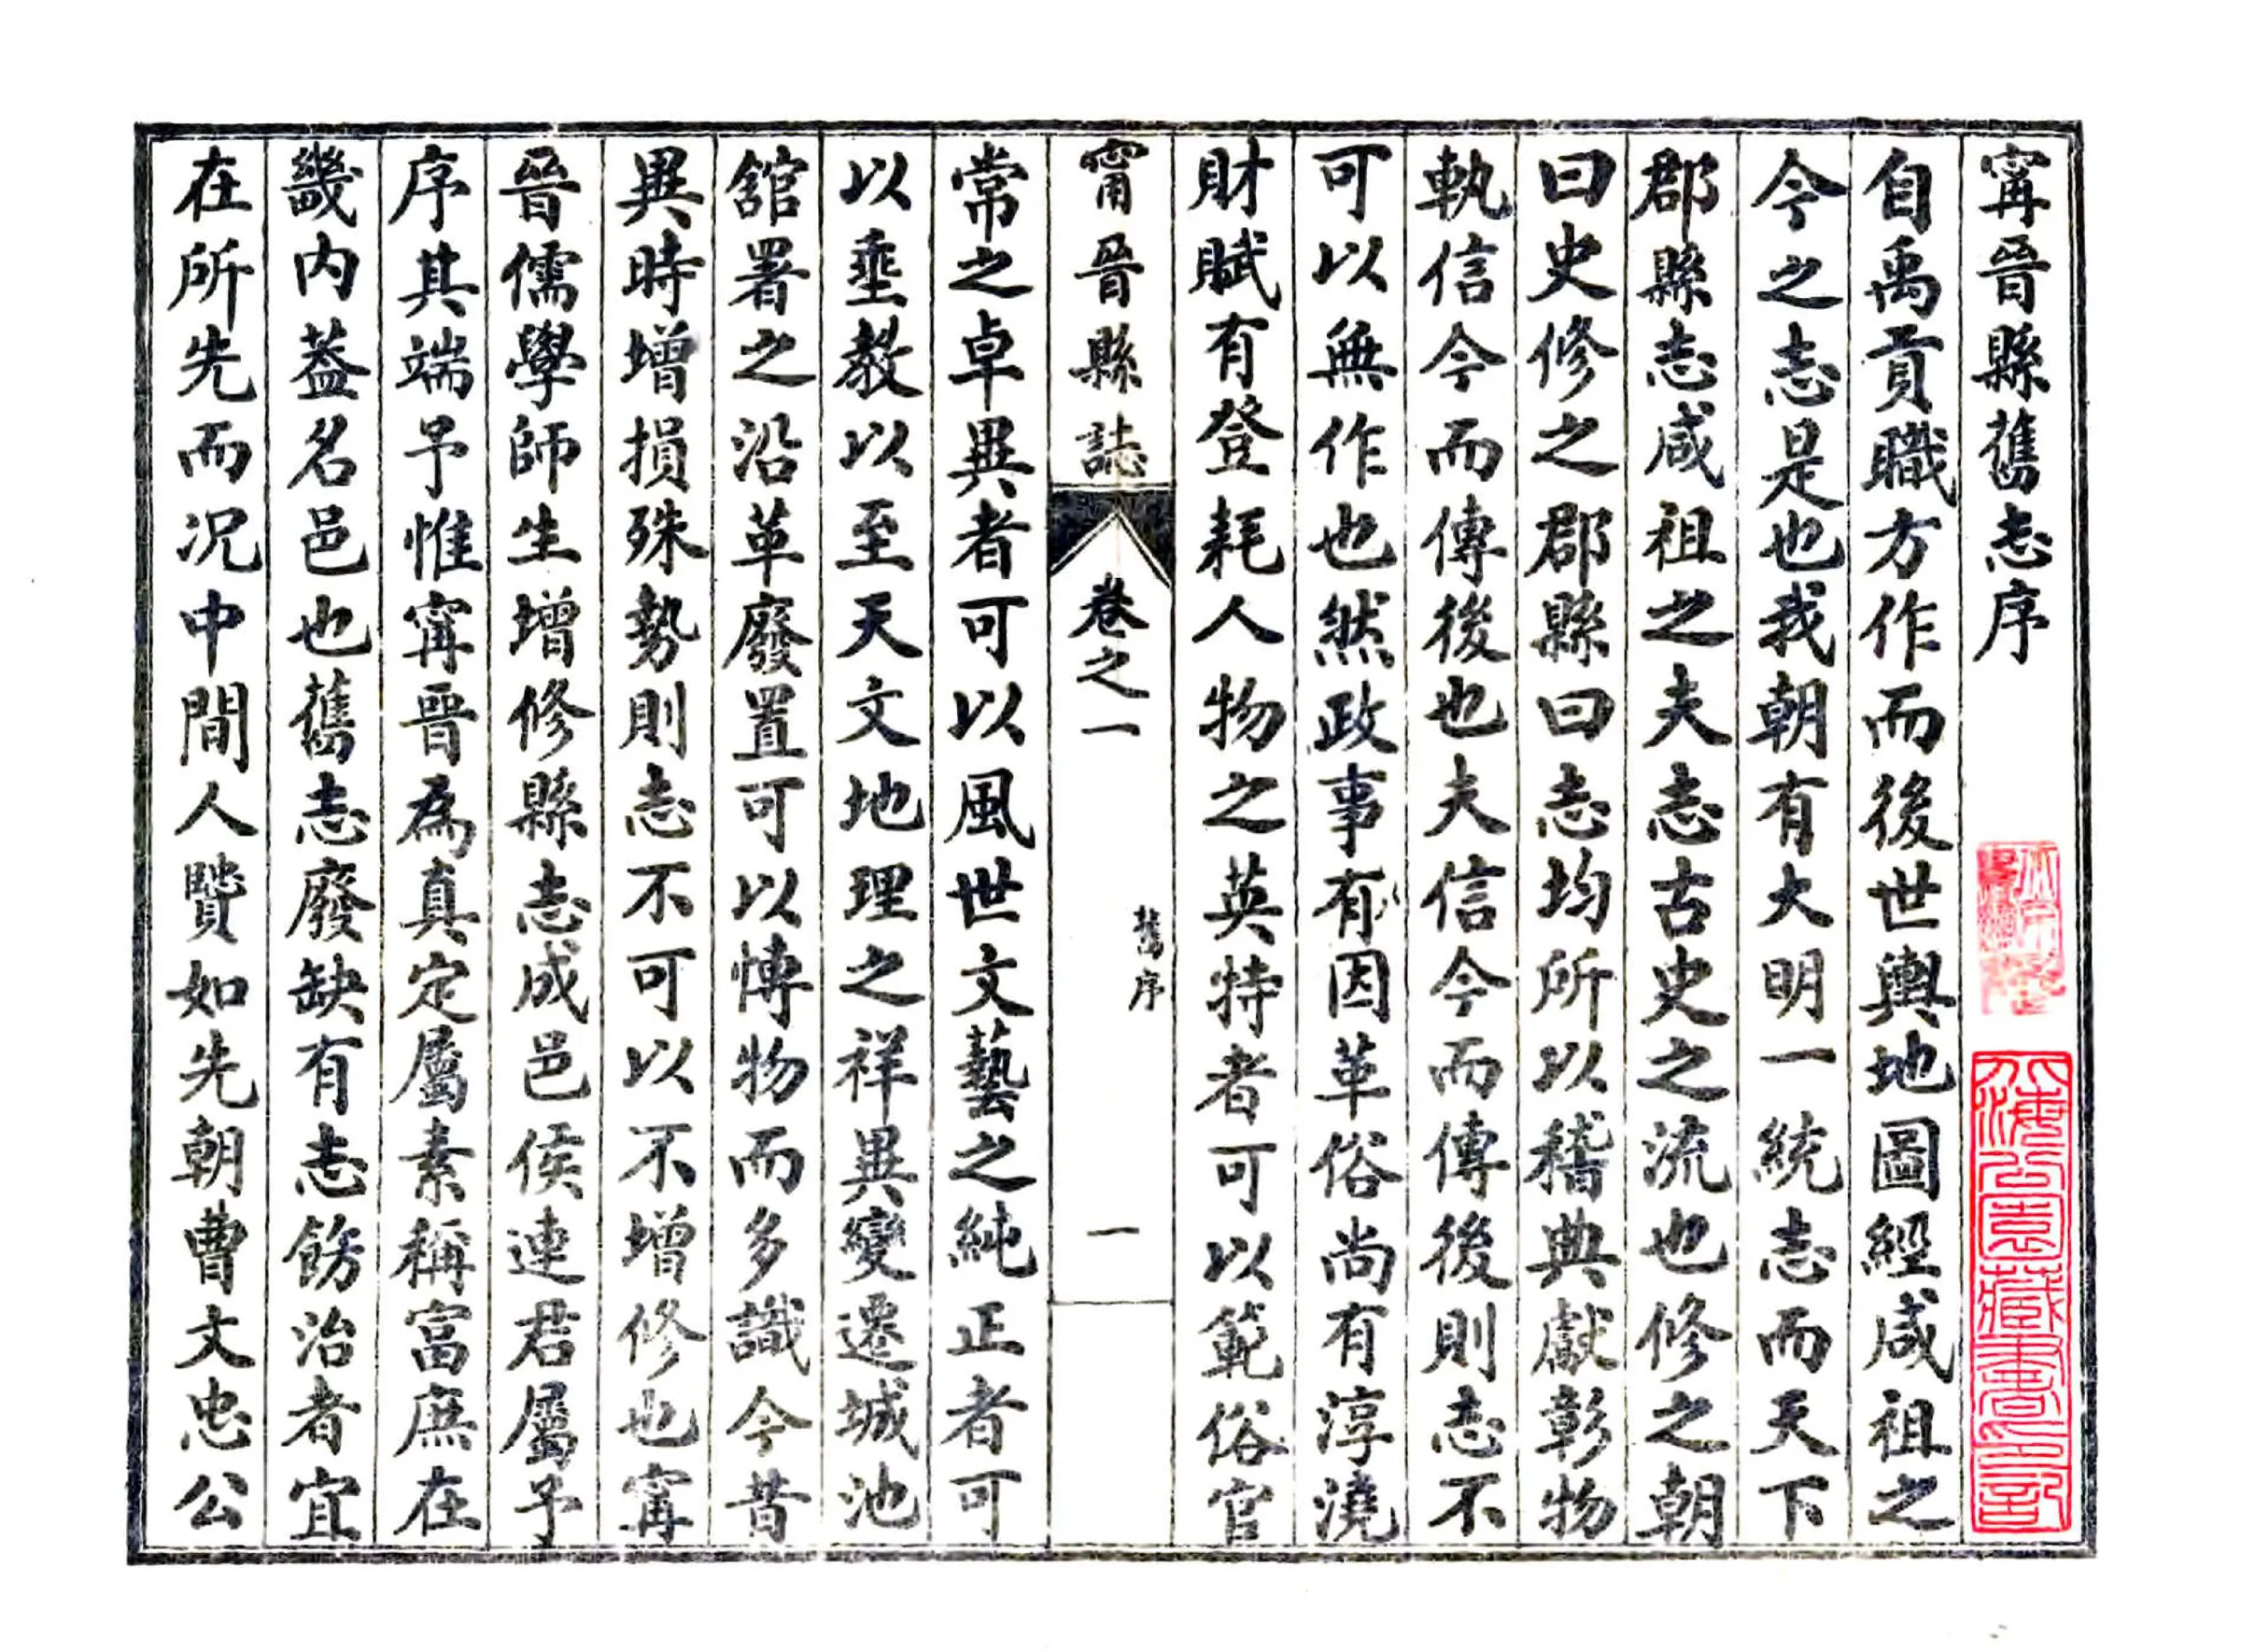 寗晉縣舊志序
自禹貢職方作而後世輿地圖經咸祖之
今之志是也我朝有大明一統志而天下
郡縣志咸祖之夫志古史之流也修之朝
曰史修之郡縣曰志均所以稽典獻彰物
軌信今而傳後也夫信今而傳後則志不
可以無作也然政事有因革俗尚有淳澆
財賦有登耗人物之英特者可以範俗官
甯晉縣誌
卷之一
舊序
一
常之卓異者可以風世文藝之純正者可
以埀教以至天文地理之祥異變遷城池
舘署之沿革廢置可以愽物而多識今昔
異時增損殊勢則志不可以不增修也寗
晉儒學師生增修縣志成邑侯連君屬予
序其端予惟寗晉為真定屬素稱富庶在
畿内葢名邑也舊志廢缺有志餝治者宜
在所先而况中間人賢如先朝曹文忠公
海公園藏書印記